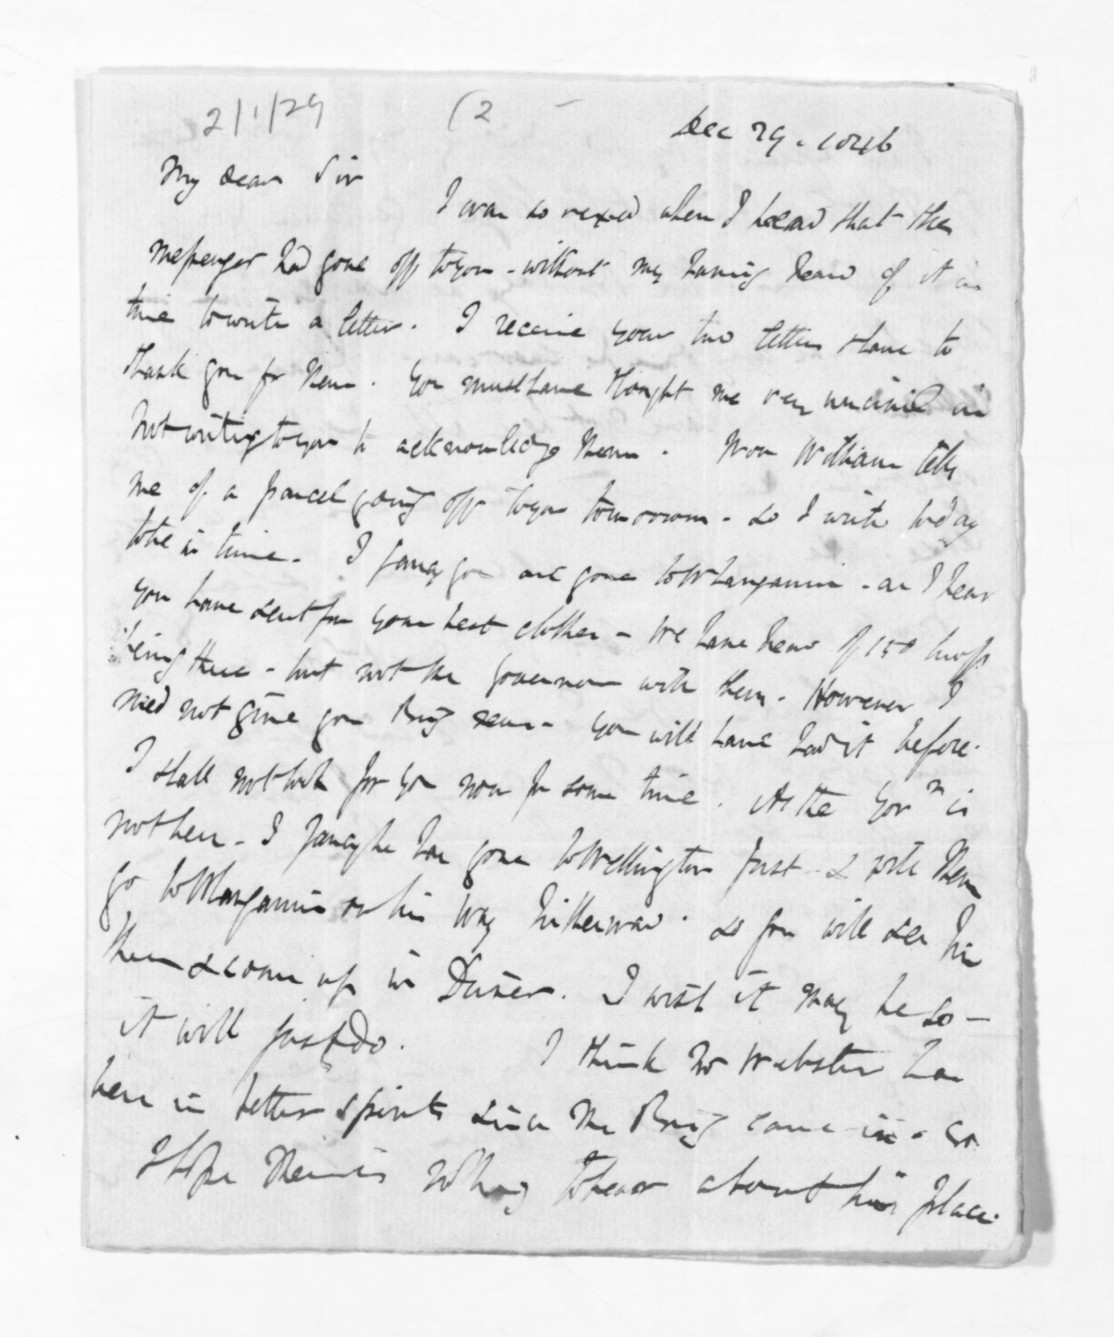 2/1/29 (2
Dec 29. 1846
My dear Sir
I was so vexed when I heard that the
messenger had gone off to you - without my having heard of it in
time to write a letter. I receive your two letters & have to
thank you for them. You must have thought me very uncivil in
not writing to you to acknowledge them. Now William tells
me of a parcel going off to you tomorrow - so I write today
to be in time. I fancy you are gone to Whanganui - as I hear
you have sent for your best clothes - We have heard of 150 troops
being there - but not the Governor with them. However I
need not give you Brig news - You will have had it before.
I shall not look for you now for some time. As the Gov r is
not here - I fancy he has gone to Wellington first - & will then
go to Whanganui on his way hitherward. So you will see him
then & come up in Driver. I wish it may be so -
it will just do. I think Mr Webster has
been in better spirits since the Brig came in - so
I hope there is nothing to hear about his place.